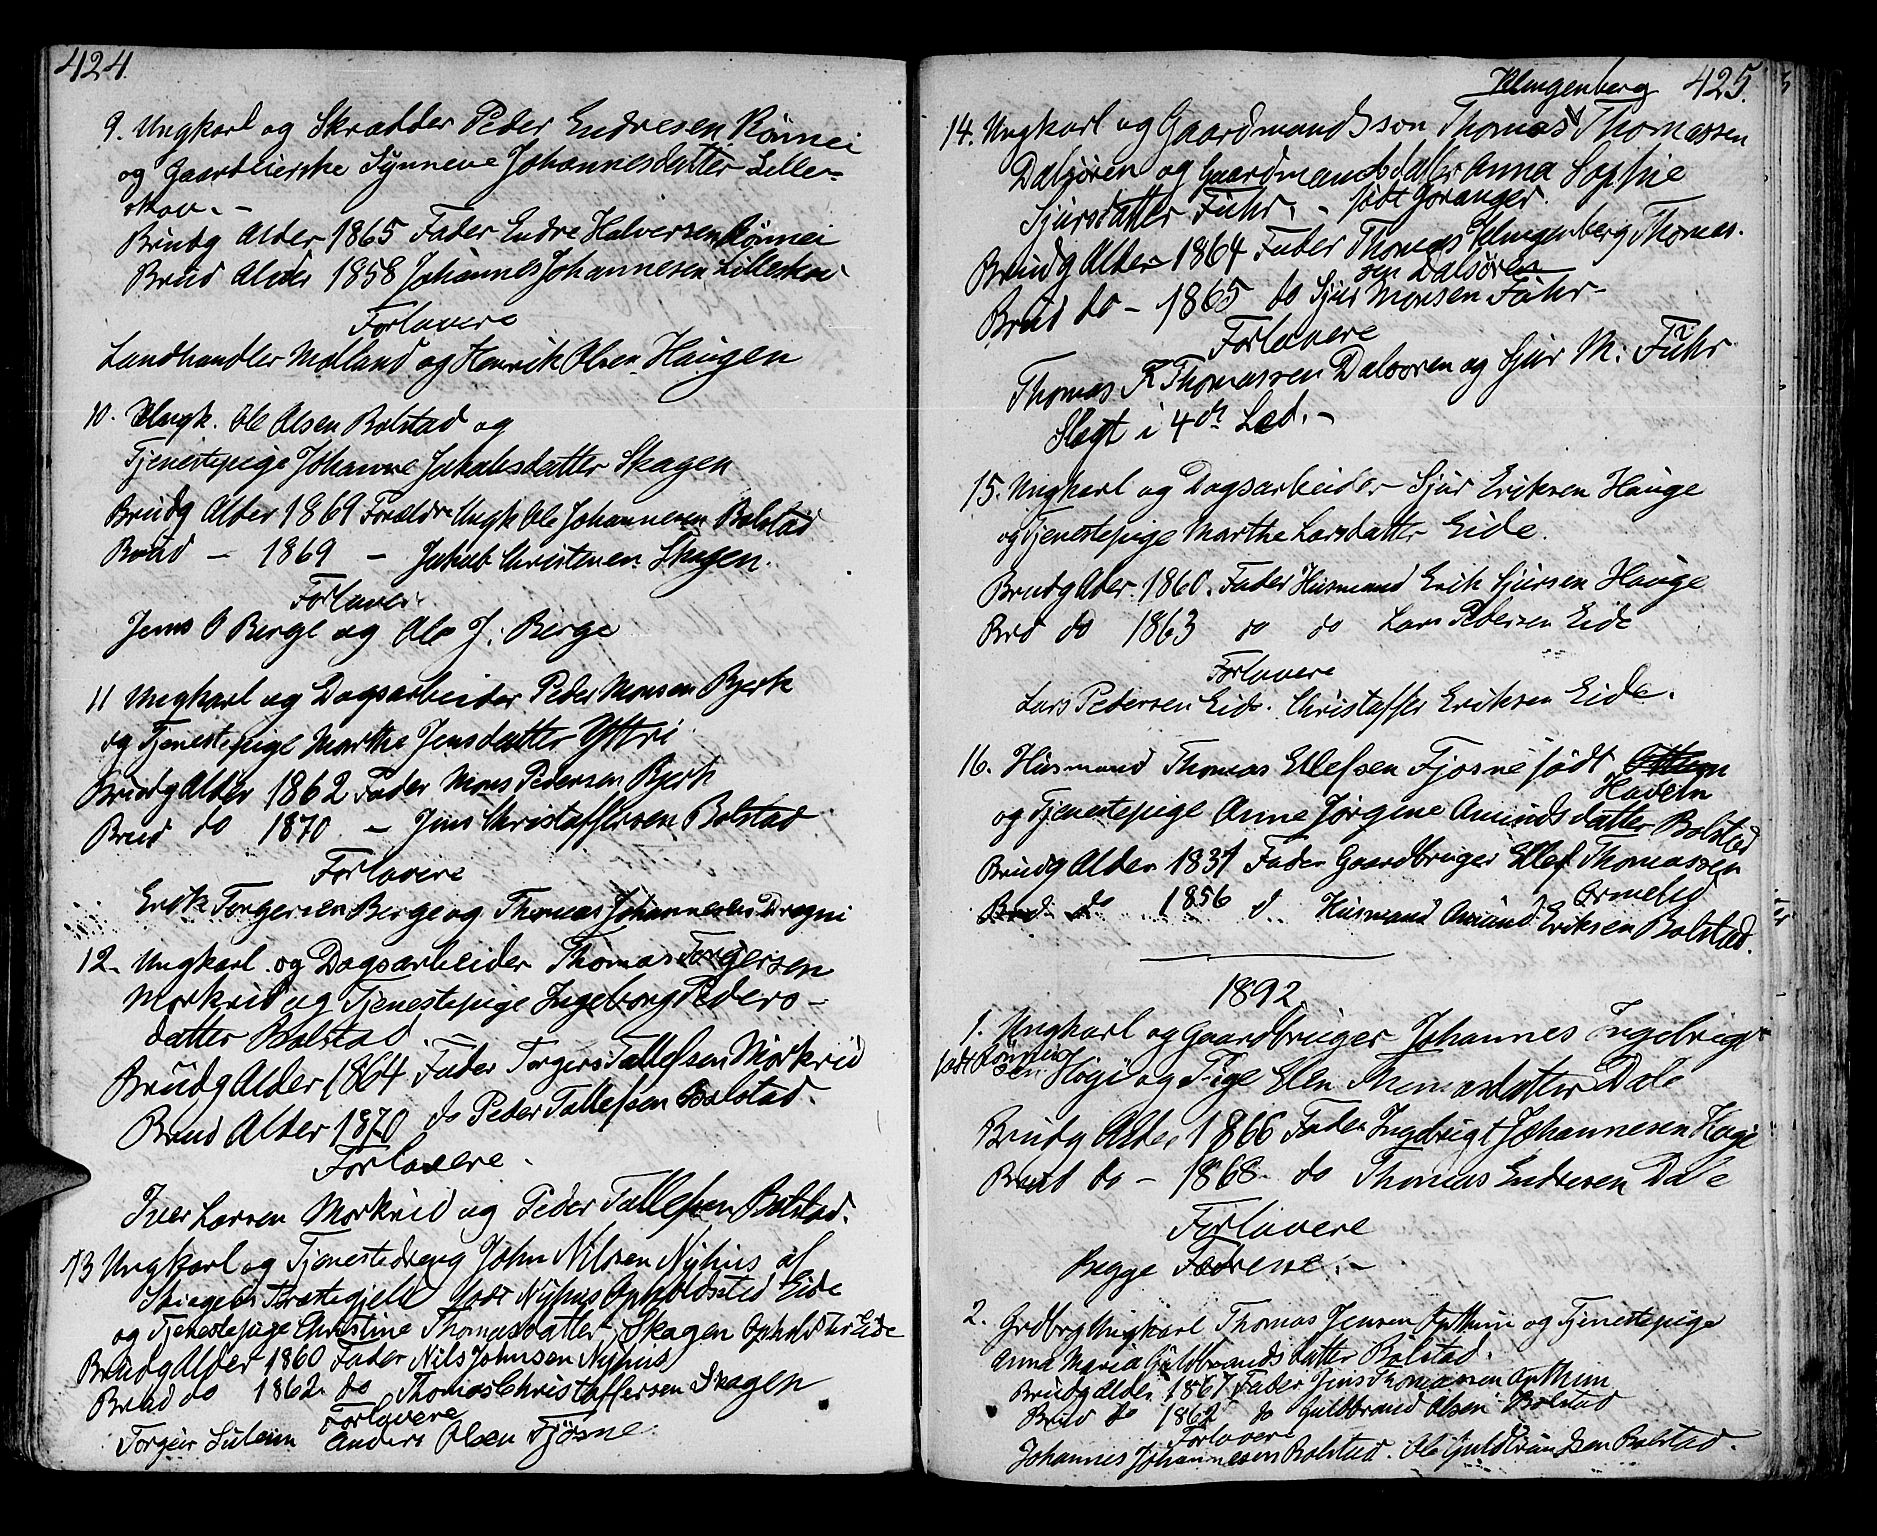 424
9. Ungkarl og Skrædder Peder Endresen Rønnei
og Gaardbierske Synneve Johannesdatter Lille-
skov. -
Brudg Alder 1865 Fader Endre Halversen Rønnei
Brud Alder 1858 Johannes Johannesen Lilleskov
Forlovere
Landhandler Molland og Henrik Olsen Haugen
10. Ungk. Ole Olsen Bolstad og
Tjenestepige Johanne Jakobsdatter Skagen
Brudg Alder 1869 Forældre Ungk Ole Johannesen Bolstad
Brud - 1869 - Jakob Christensen Skagen.
Forlovere
Jens O Berge og Ole J. Berge
11 Ungkarl og Dagsarbeider Peder Monsen Bjerk
og Tjenestepige Marthe Jensdatter Yttri
Brudg Alder 1862 Fader Mons Pedersen Bjerk
Brud do 1870 - Jens Christoffersen Bolstad
Forlovere
Erik Torgersen Berge og Thomas Johannesen Drægni
12. Ungkarl og Dagsarbeider Thomas Torgersen
Morkrid og Tjenestepige Ingeborg Peders-
datter Bolstad.
Brudg Alder 1864 Fader Torgers Tollefsen Morkrid
Brud Alder 1870 do Peder Tollefsen Bolstad.
Forlovere.
Iver Larsen Morkrid og Peder Tollefsen Bolstad.
13 Ungkarl og Tjenestedreng John Nilsen Nyhus af
Præstegjeld født Nyhus Opholdssted Eide
og Tjenestepige Christine Thomasdatter Skagen Opholdssted Eide
Brudg Alder 1860 Fader Nils Johnsen Nyhus
Brud do 1862 do Thomas Christoffersen Skagen
Forlovere
Torgeir Suleim Anders Olsen Fjøsne.
425.
Klingenberg
14. Ungkarl og Gaardmandsson Thomas Thomassen
Dalsøren og Gaardmandsdatter Anna Sophie
Sjursdatter Fuhr. - født Joranger.
Brudg Alder 1864 Fader Thomas Klingenberg Thomas-
sen Dalsøren
Brud do - 1865 do Sjur Monsen Fuhr-
Forlovere
Thomas K Thomassen Dalsøren og Sjur M. Fuhr
Slægt i 4de Led. -
15. Ungkarl og Dagsarbeider Sjur Eriksen Hauge
og Tjenestepige Marthe Larsdatter Eide.
Brudg Alder 1860. Fader Husmand Erik Sjursen Hauge
Brd do 1863 do do Lars Pedersen Eide
Forlovere
Lars Pedersen Eide. Christoffer Eriksen Eide.
16. Husmand Thomas Ellefsen Fjøsne født
Haveln
og Tjenestepige Anne Jørgine Amundsdatter Bolstad
Brudg Alder 1831 Fader Gaardbruger Ellef Thomassen
Ormelid
Brud do 1856 d Husmand Amund Eriksen Bolstad.
1892
1. Ungkarl og Gaardbruger Johannes Ingebrigt-
født Rønnei
sen Høgi og Pige Elen Thomasdatter Dale
Brudg Alder 1866 Fader Ingebrigt Johannesen Høgi
Brud do - 1868. do Thomas Endresen Dale
Forlovere
Begge Fædrene. -
2. Grdbrg Ungkarl Thomas Jensen Opthun og Tjenestepige
Anna Maria Guldbrandsdatter Bolstad.
Brudg Alder 1867 Fader Jens Thomassen Opthun
Brud do 1862 do Guldbrand Olsen Bolstad
Forlovere
Johannes Johannesen Bolstad. Ole Guldbrandsen Bolstad.